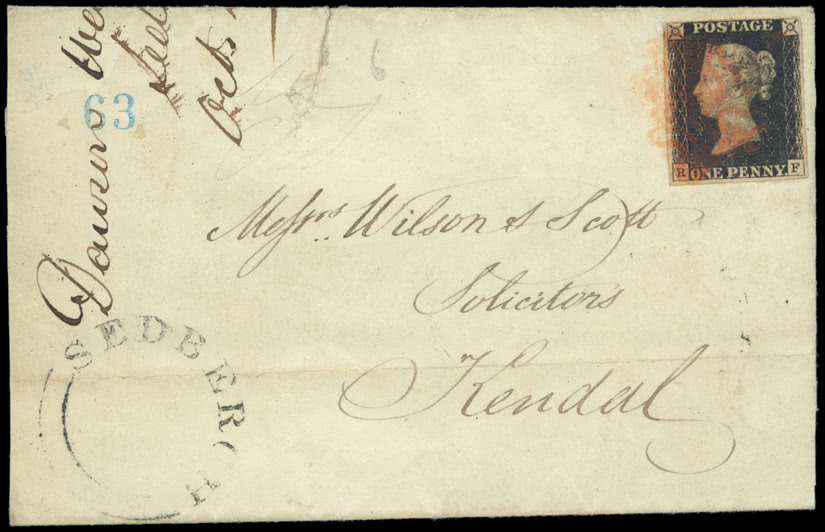 Dawson
Octr
63
POSTAGE
R F
ONE PENNY.
Messrs. Wilson & Scott
Solicitors
Kendal
SEDBERGH